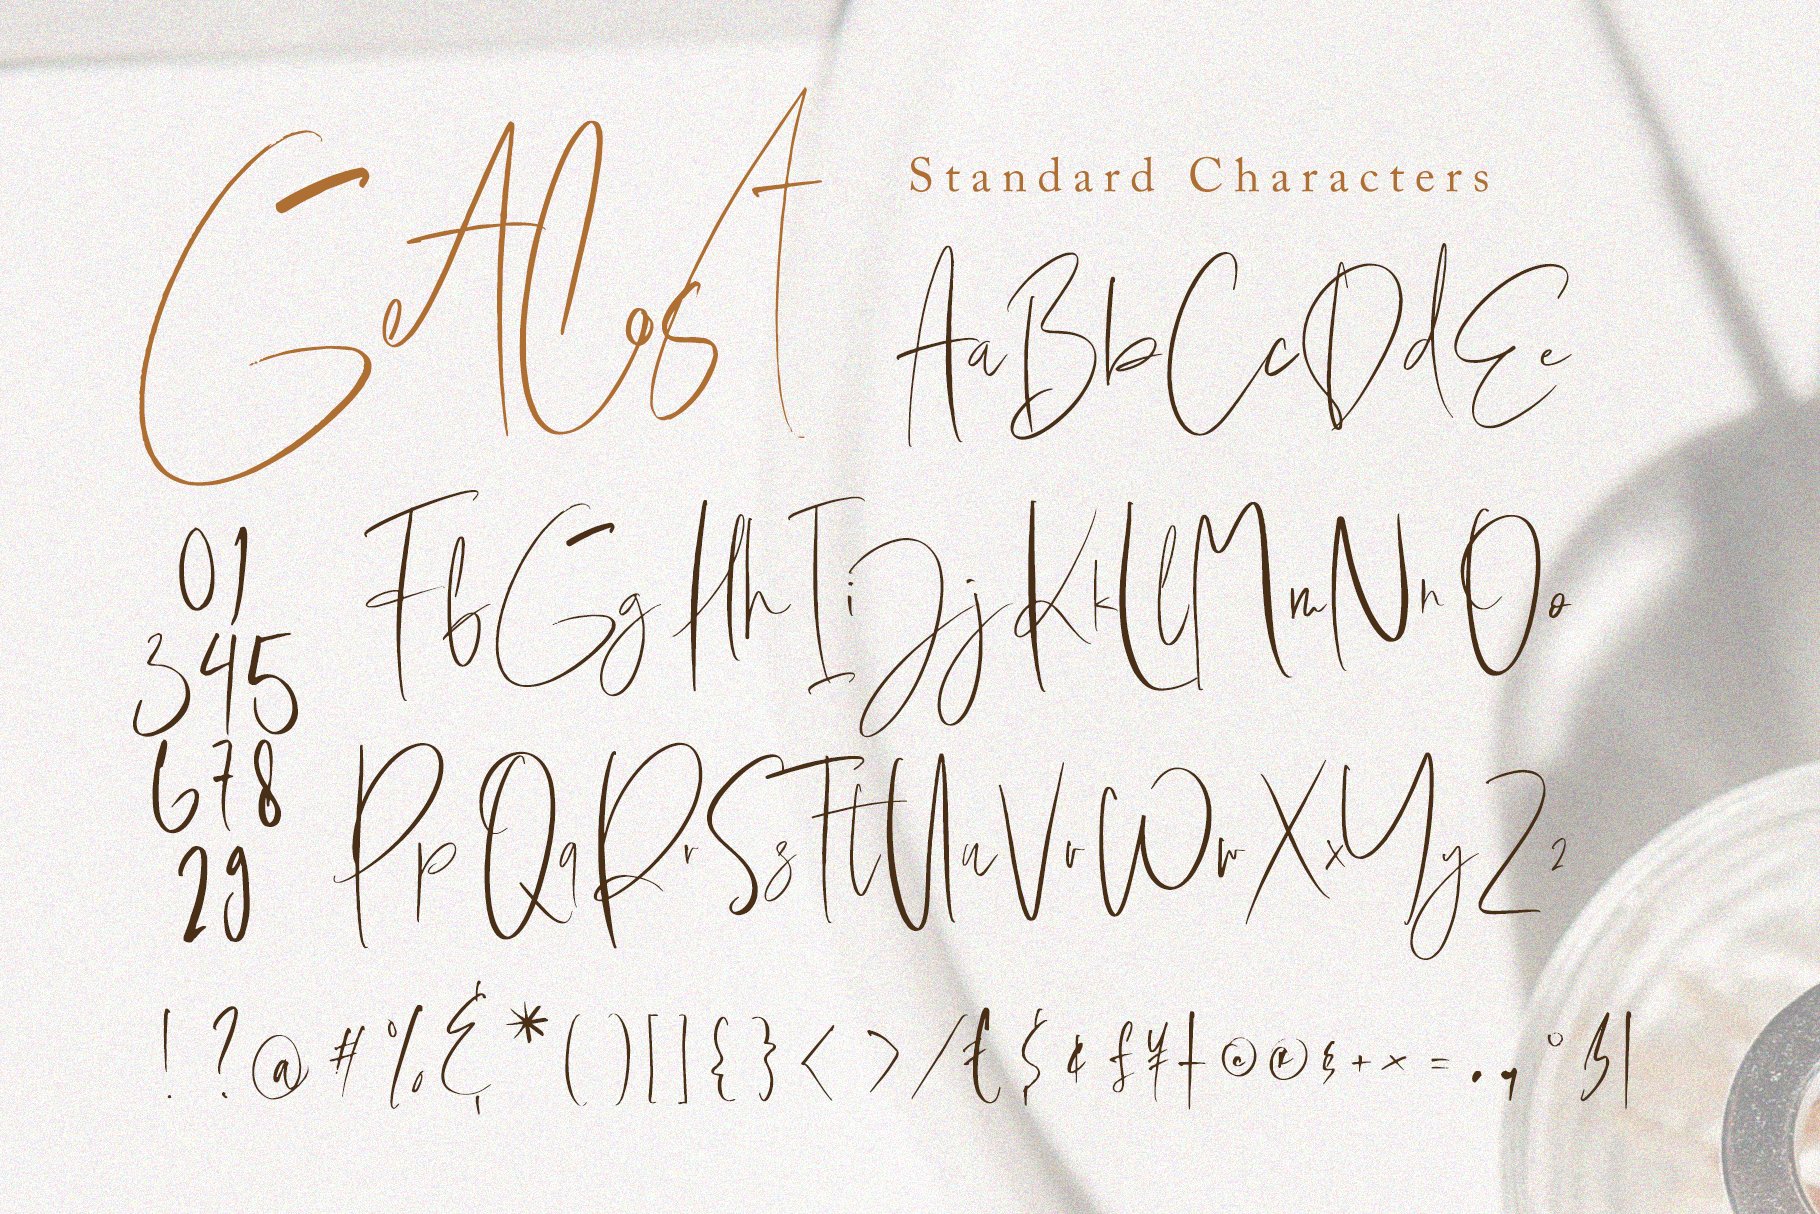 GeACosA
Standard Characters
AaBbCcDdEe
01
FfGgHhIiJjKkLlMmNnOo
345
678
PpQqRrSsTtUuVvWwXxYyZz
29
! ? @ # % & * ( ) [ ] { } < > / £ $ ¢ £ ¥ † © ® § + × = . , ° ß |